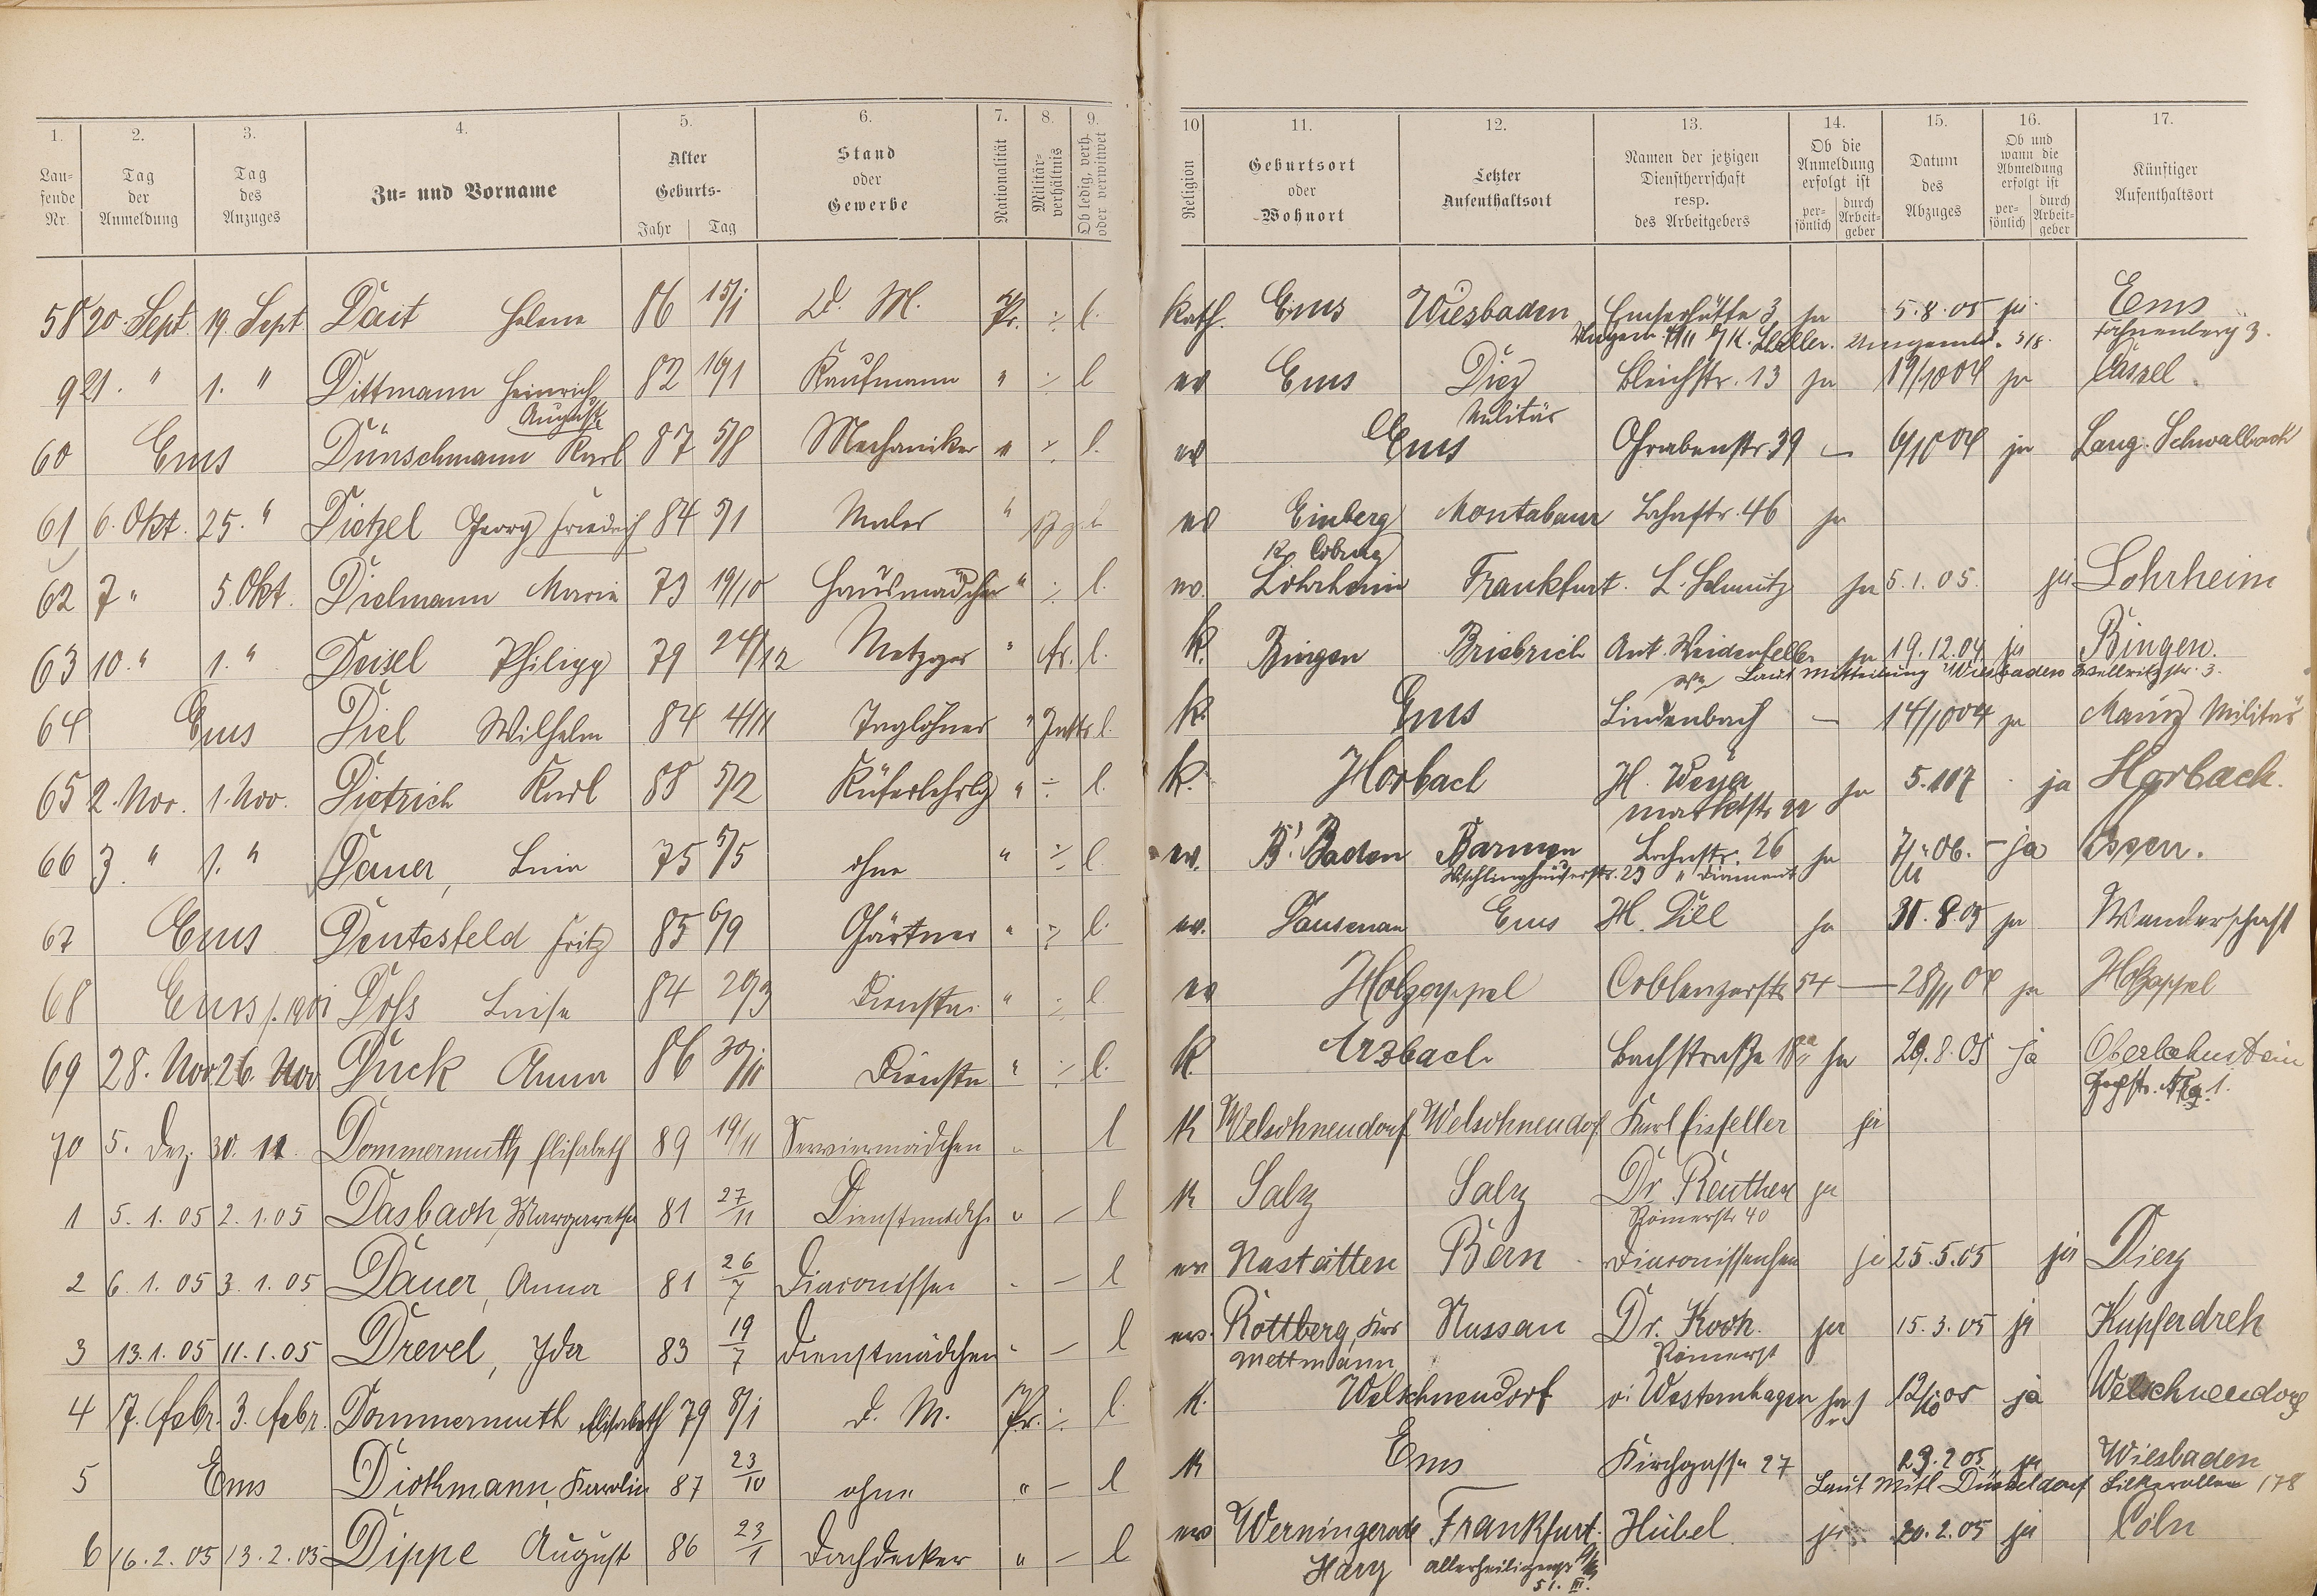 1. 2. 3. 4. 5. 6. 7. 8. 9. 10 11. 12. 13. 14. 15. 16. 17.
Laufende Nr.
Tag der Anmeldung
Tag des Anzuges
Zu- und Vorname
Alter Geburts- Jahr Tag
Stand oder Gewerbe
Nationalität
Militärverhältnis
Ob ledig, verh. oder verwitwet
Religion
Geburtsort oder Wohnort
Letzter Aufenthaltsort
Namen der jetzigen Dienstherrschaft resp. des Arbeitgebers
Ob die Anmeldung erfolgt ist persönlich durch Arbeitgeber
Datum des Abzuges
Ob und wann die Abmeldung erfolgt ist persönlich durch Arbeitgeber
Künftiger Aufenthaltsort
58 20. Sept. 19. Sept. Dait Helene 86 15/1 D. M. Pr. ÷ l. kath. Ems Wiesbaden Emserhütte 3 ja 5.8.05 ja Ems
9 21. " 1. " Dittmann Heinrich August 82 16/1 Kaufmann " ÷ l ev Ems Diez Bleichstr. 13 ja 19/10 04 ja Cassel
Militär
60 Ems Dünschmann Karl 87 5/8 Mechaniker " ÷ l. ev Ems Grabenstr 39 — 6/10 04 ja Lang. Schwalbach
61 6. Okt. 25. " Dietzel Georg Friedrich 84 5/1 Maler " ev Einberg Montabaur Lahnstr. 46 ja
Kr. Coburg
62 7 " 5. Okt. Dielmann Marie 73 19/10 Hausmädchen " ÷ l. ev. Lohrheim Frankfurt. L. Schmitz ja 5.1.05. ja Lohrheim
63 10. " 1. " Deisel Philipp 79 24/12 Metzger " l. k. Bingen Briebrich Ant. Weidenfeller ja 19.12.04 ja Bingen.
Laut Mitteilung Wiesbaden Wellritzstr. 3.
64 Ems Diel Wilhelm 84 4/11 Taglöhner " l. k. Ems Lindenbach — 14/10 04 ja Mainz Militär
65 2. Nov. 1. Nov. Dietrich Karl 88 5/2 Küferlehrlg " ÷ l. k. Horbach H. Weyer ja 5.1 07 ja Horbach.
Marktstr 22
66 3. " 1. " Dauer, 75 5/5 ohne " ÷ l. ev. B. Baden Barmen Lahnstr. 26 ja 06. — ja Essen.
67 Ems Dentesfeld Fritz 85 6/9 Gärtner " ÷ l. ev. Dausenau Ems H. Dill ja 31.8.05 ja Wanderschaft
68 Ems Döß Luise 84 20/3 " ÷ l. ev Holzappel Coblenzerstr 54 — 28/11 04 ja Holzappel
69 28. Nov 26. Nov Duck Anna 86 30/11 " ÷ l. k. Arzbach Bachstraße 18 ja 29.8.05 ja Oberlahnstein
70 5. Dez. 30. 11. Dommermuth Elisabeth 89 19/11 Serviermädchen " l k Welschneudorf Welschneudorf Karl Eisfeller ja
1 5. 1. 05 2. 1. 05 Dasbach, Margarethe 81 27/11 Dienstmädch. " — l k Salz Salz Dr. Reuther ja
Römerstr 40
2 6. 1. 05 3. 1. 05 Dauer, Anna 81 26/7 Diaconisse " — l ev Nastätten Bern ja 25.5.05 ja Diez
3 13. 1. 05 11. 1. 05 Drevel, Ida 83 19/7 Dienstmädchen " — l ev. Rottberg, Krs Nassau Dr. Koch. ja 15.3.05 ja Kupferdreh
Mettmann Römerst
4 7. Febr. 3. Febr. Dommermuth Elisabeth 79 8/1 D. M. Pr. ÷ l. k. Welschneudorf v. Westernhagen ja 12/10 05 ja Welschneudorf
5 Ems Dickmann, Karolin 87 23/10 ohne " — l k Ems Kirchgasse 27 23.2.05 ja Wiesbaden
Laut Mitl Düsseldorf 178
6 16. 2. 05 13. 2. 05 Dippe August 86 23/1 Dachdecker " — l ev Werningerode Frankfurt. Hübel ja 20.2.05 ja Cöln
Harz